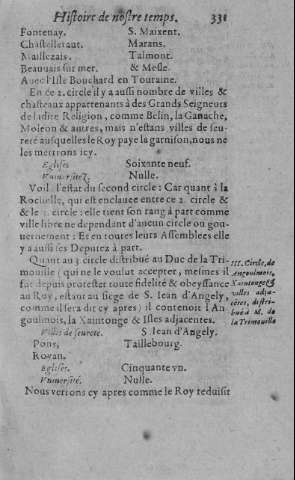 Histoire de nostre temps. 331
Fontenay. S. Maixent.
Chastelleraut. Marans.
Maillezais. Talmont.
Beauuais sur mer. & Mesle.
Auec l'Isle Bouchard en Touraine.
En ce 2. circle il y a aussi nombre de villes &
chasteaux appartenants à des Grands Seigneurs
de ladite Religion, comme Belin, la Ganache,
Moleon & autres, mais n'estans villes de seu-
reté ausquelles le Roy paye la garnison, nous ne
les mettrons icy.
Eglises Soixante neuf.
Vniuersitez. Nulle.
Voil l'estat du second circle: Car quant à la
Rochelle, qui est enclauee entre ce 2. circle &
& le 3. circle: elle tient son rang à part comme
ville libre ne dependant d'aucun circle ou gou-
uernement: Et en toutes leurs Assemblees elle
y a aussi ses Deputez à part.
Quant au 3 circle distribué au Duc de la Tri-
moüille (qui ne le voulut accepter, mesmes il
fut depuis protester toute fidelité & obeyssance
au Roy, estant au siege de S. Iean d'Angely,
comme il sera dit cy apres) il contenoit l'An
goulmois, la Xaintonge & Isles adjacentes.
III. Circle, de
Angoulmois,
Xaintonge &
villes adja-
cētes, distri-
bué à M. de
la Trimouille
Villes de seureté. S Iean d'Angely.
Pons, Taillebourg.
Royan.
Eglises. Cinquante vn.
Vniuersité. Nulle.
Nous verrons cy apres comme le Roy reduisit